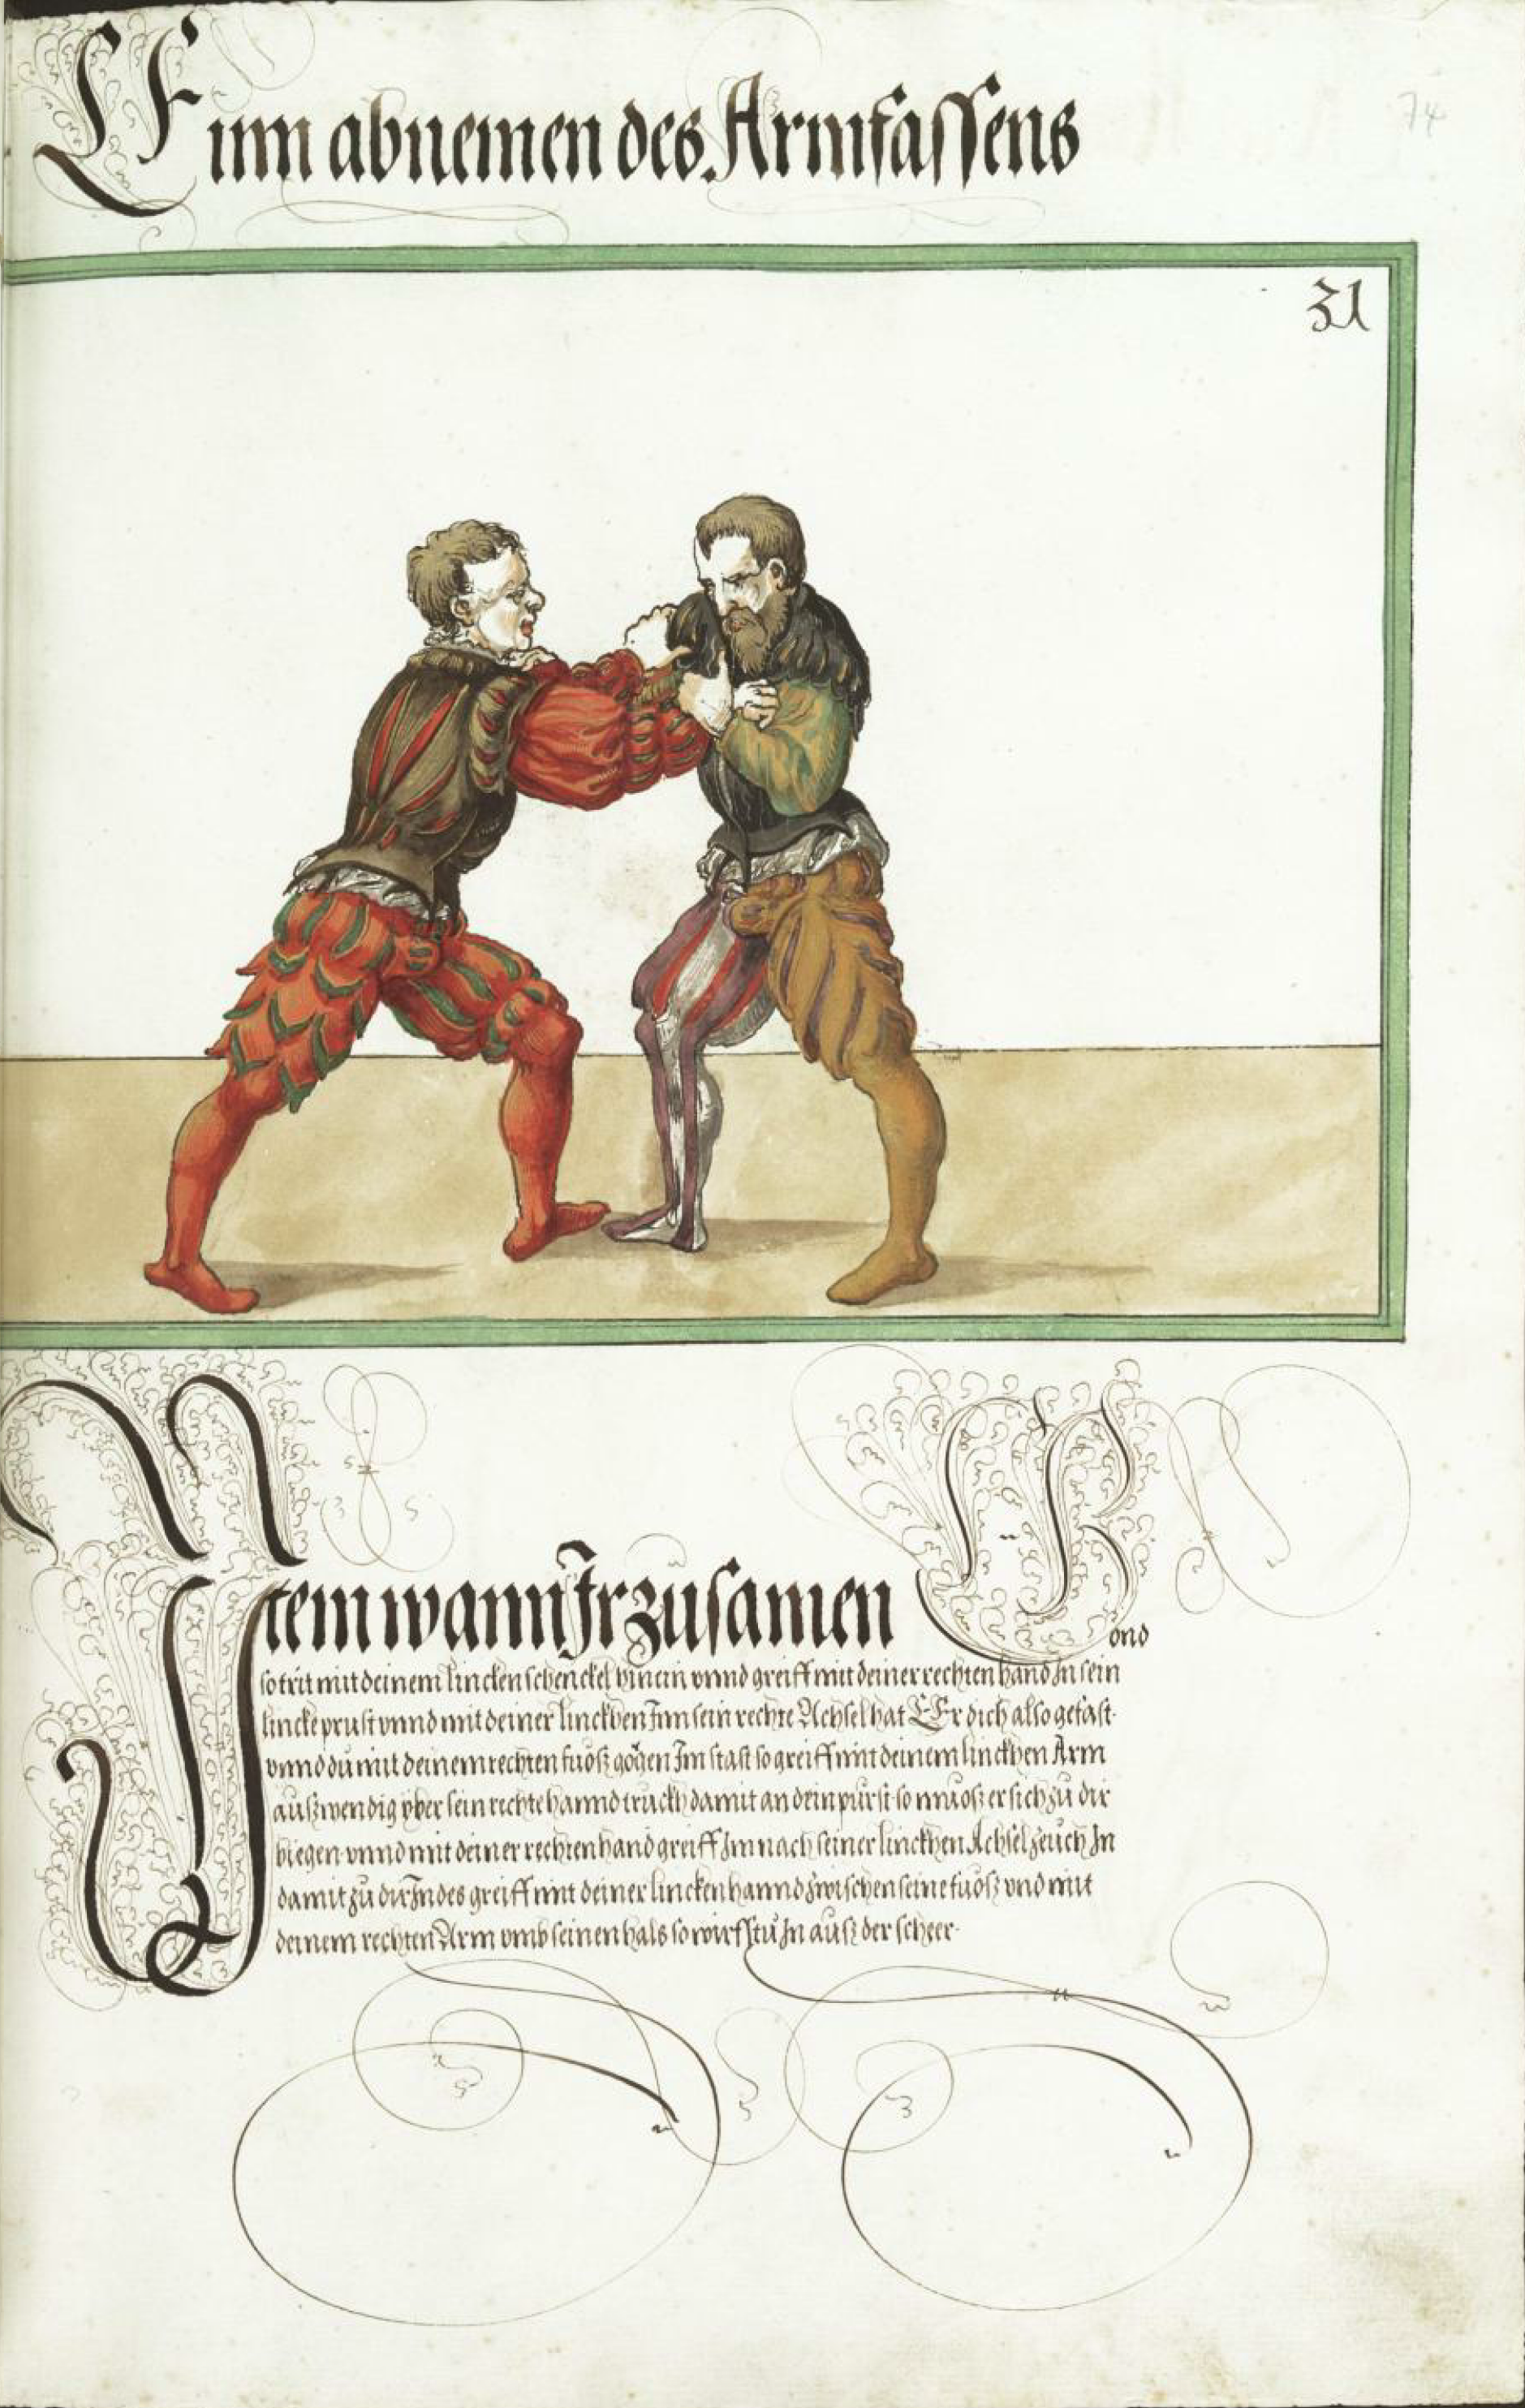 Einn abnemen des Armfassens
74
31
Item wann Ir zusamen
kond
so trit mit deinem linckenschenckel hinein vnnd greiff mit deiner rechten hand In sein
lincke prust vnnd mit deiner linckhen Inn sein rechte Achsel hat EEr dich also gefast
vnnd du mit deinem rechten fuosz gögen Im stast so greiff mit deinem linckhen Arm
auszwendig yber sein rechte hannd truckh damit an dein purst so muosz er sich zu dir
biegen vnnd mit deiner rechten hand greiff Im nach seiner linckhen Achsel zeuch In
damit zu dir Indes greiff mit deiner lincken hannd zwischen seine fuosz vnd mit
deinem rechten Arm vmb seinen hals so wirfstu In ausz der scheer